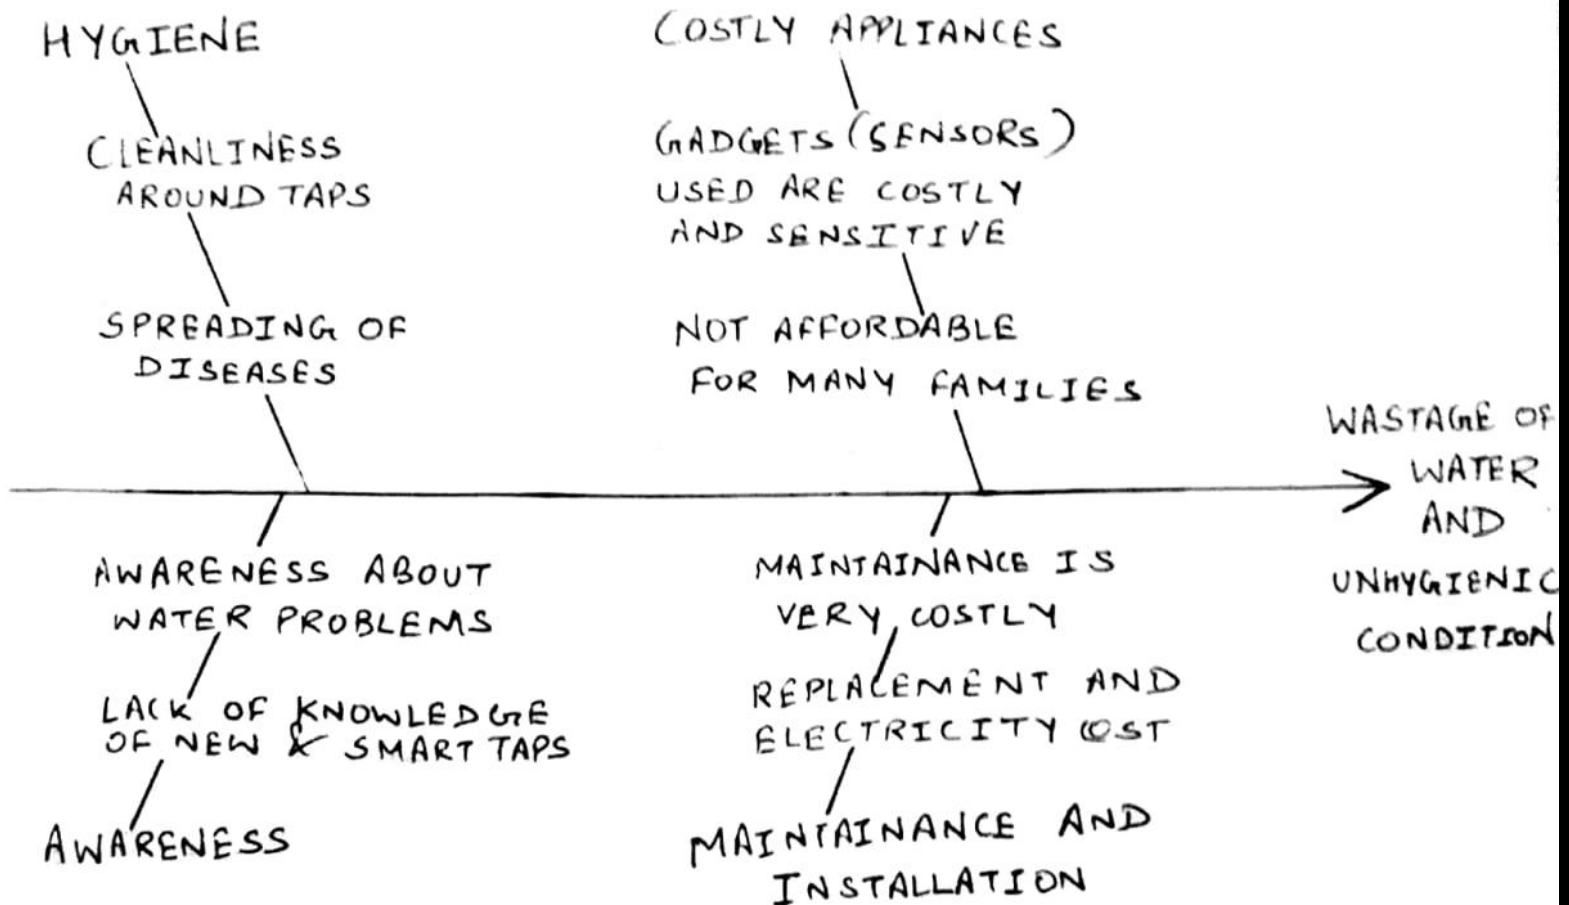 HYGIENE
CLEANLINESS
AROUND TAPS
SPREADING OF
DISEASES
COSTLY APPLIANCES
GADGETS (SENSORS)
USED ARE COSTLY
AND SENSITIVE
NOT AFFORDABLE
FOR MANY FAMILIES
WASTAGE OF
WATER
AND
UNHYGIENIC
CONDITION
AWARENESS ABOUT
WATER PROBLEMS
LACK OF KNOWLEDGE
OF NEW & SMART TAPS
AWARENESS
MAINTAINANCE IS
VERY COSTLY
REPLACEMENT AND
ELECTRICITY COST
MAINTAINANCE AND
INSTALLATION